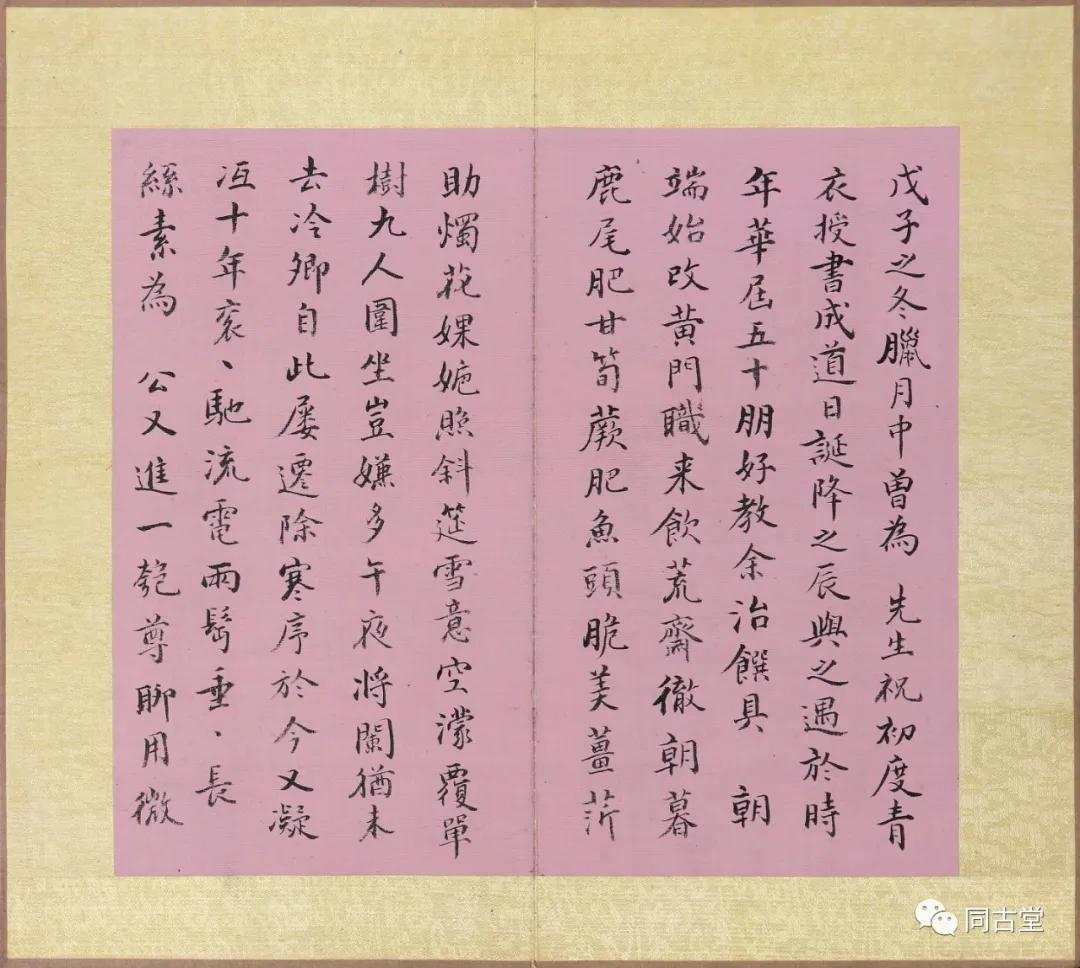 戊子之冬臘月中曾為 先生祝初度青
衣授書成道日誕降之辰與之遇於時
年華屆五十朋好教余治饌具 朝
端始改黃門職来飲荒齋徹朝暮
鹿尾肥甘筍蕨肥魚頭脆美薑芥
助燭花婐姽照斜筵雪意空濛覆單
樹九人圍坐豈嫌多午夜將闌猶未
去冷卿自此屡遷除寒序於今又凝
冱十年衮、馳流電兩髩垂、長
絲素為 公又進一匏尊聊用微
同古堂